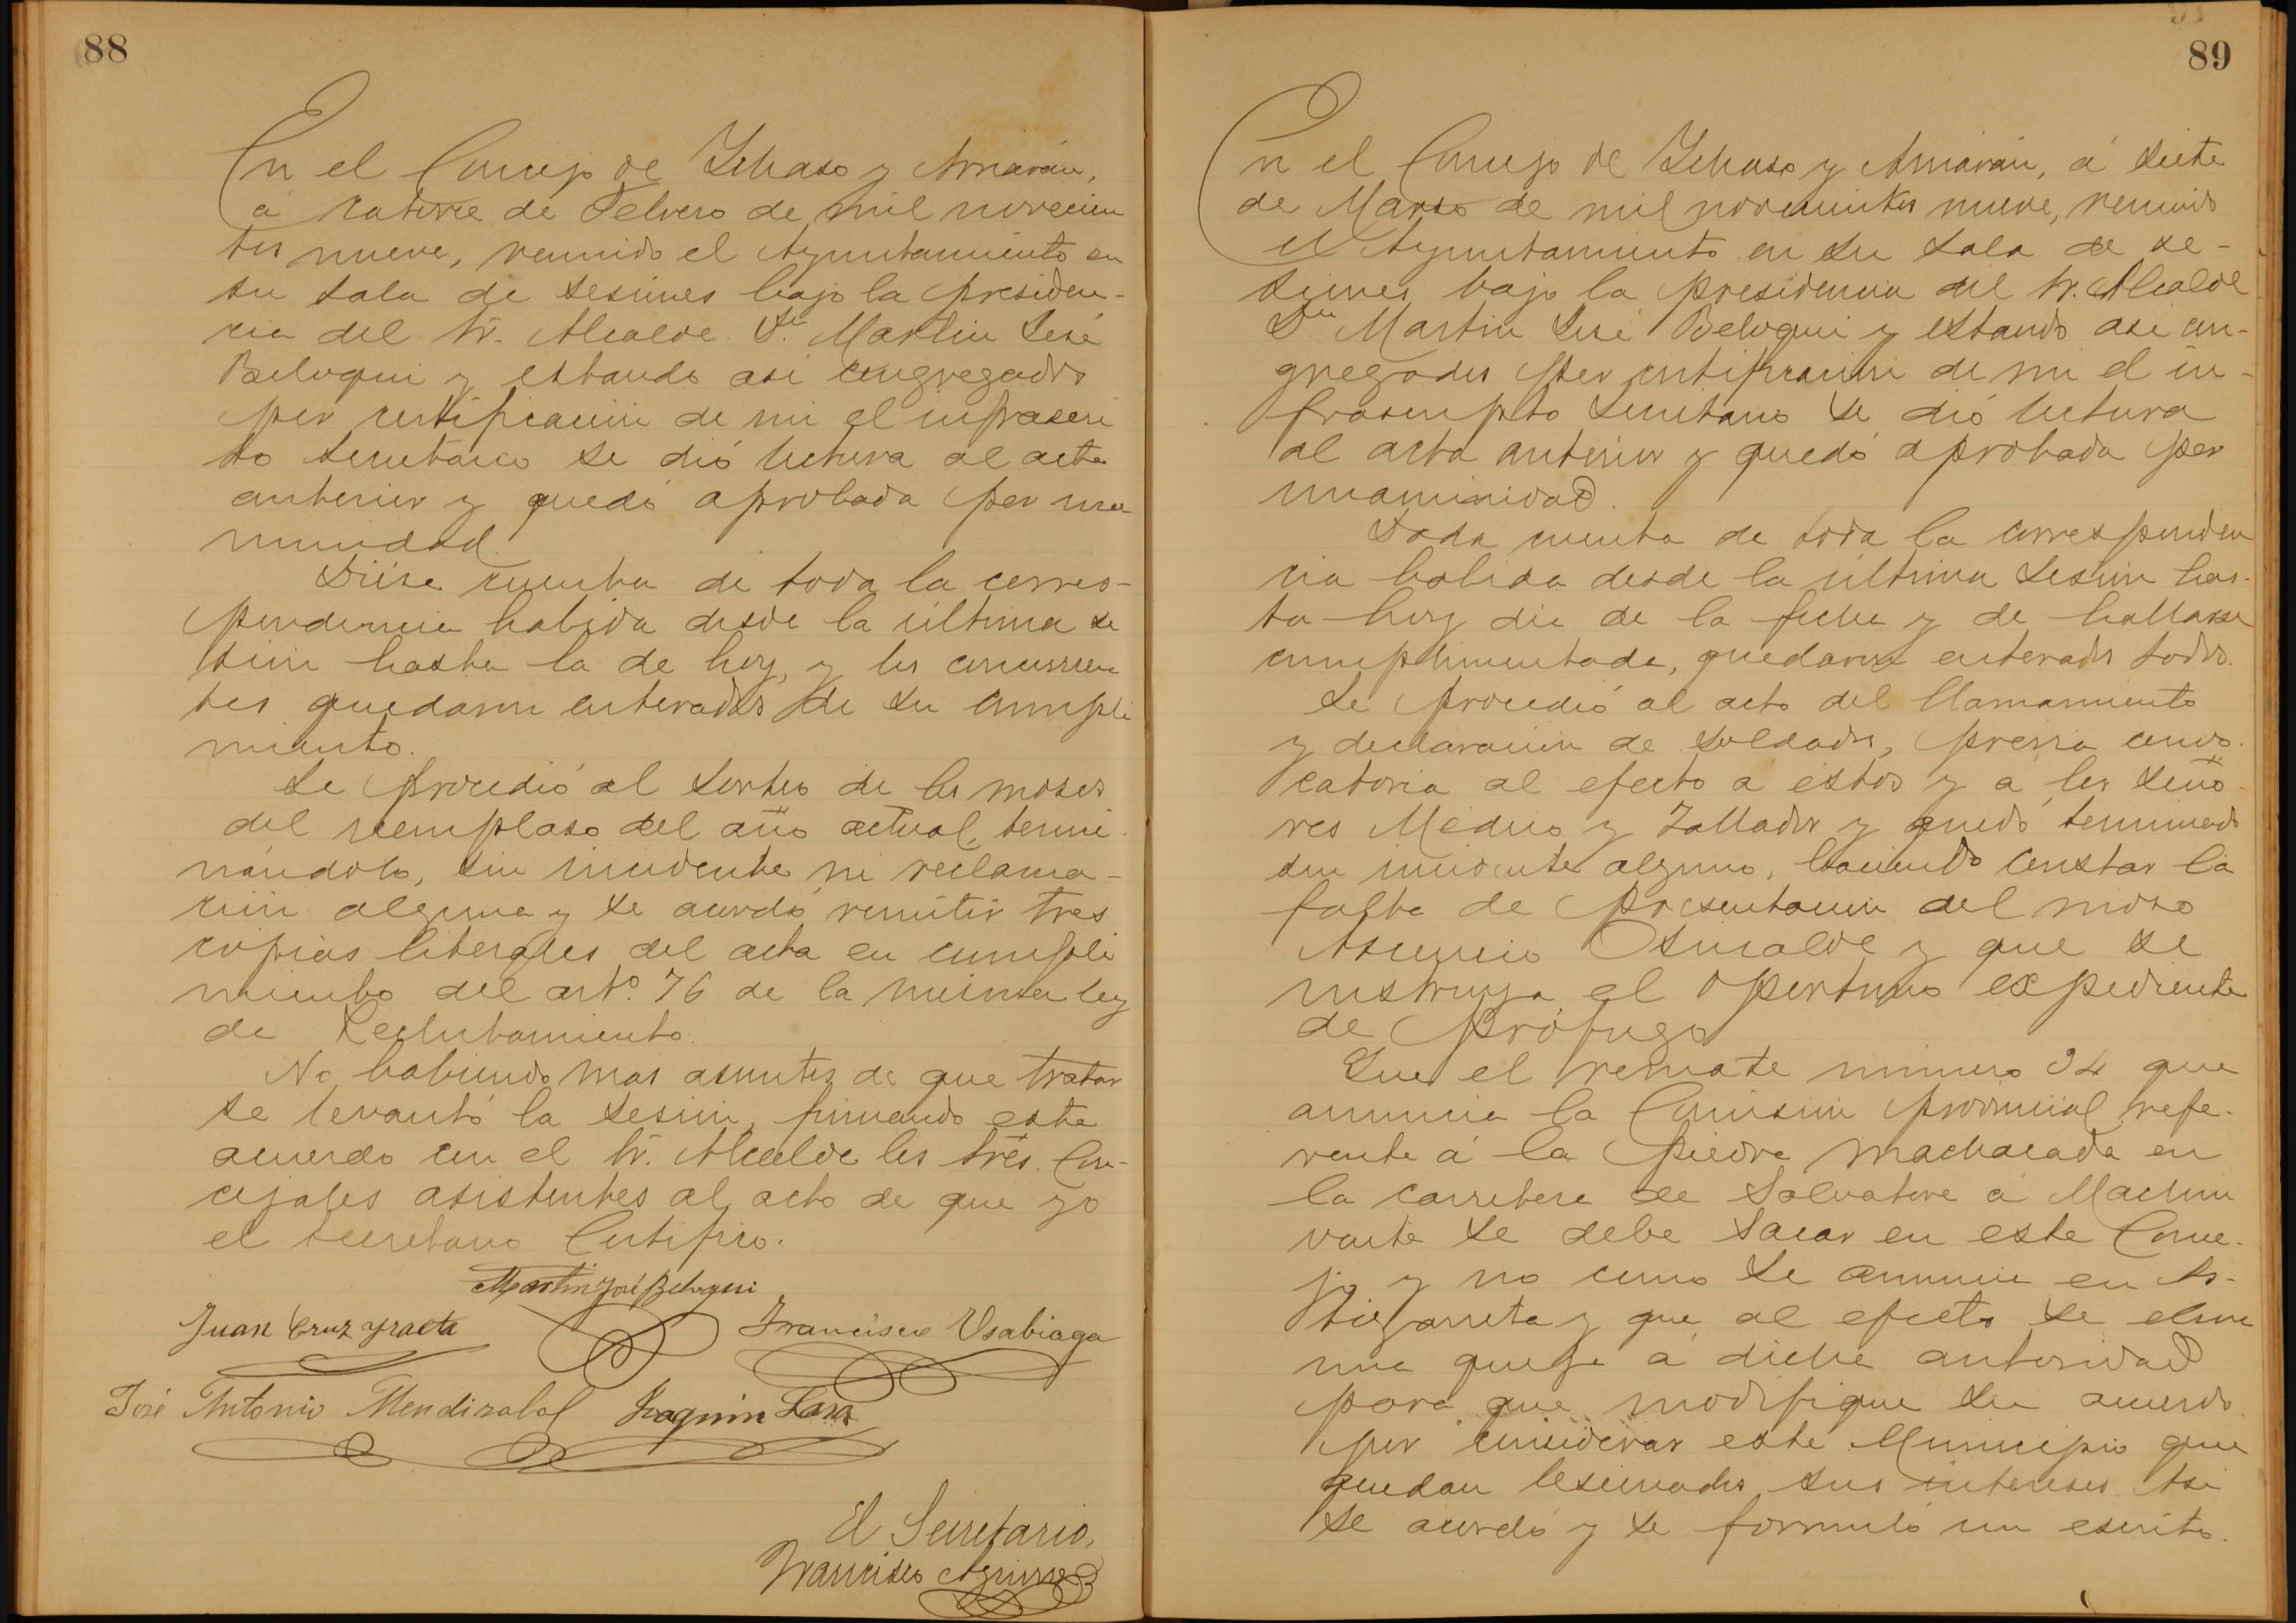 88
En el Concejo de Ichaso y Arriarán,
á catorce de Febrero de mil novecien
tos nueve, reunido el Ayuntamiento en
su sala de sesiones bajo la presiden-
cia del Sr. Alcalde Dn. Martin José
Beloqui y estando asi congregados
por certificación de mi el infrascri
to Secretario se dió lectura al acta
anterior y quedó aprobada por una
nimidad.
Dióse cuenta de toda la corres-
pondencia habida desde la última se
sión hasta la de hoy, y los concurren
tes quedaron enterados de su cumpli
miento.
Se procedió al sorteo de los mozos
del reemplaso del año actual, termi-
nándolo, sin incidente ni reclama-
ción alguna y se acordó remitir tres
copias literales del acta en cumpli
miento del artº. 76 de la misma ley
de Reclutamiento.
No habiendo mas asuntos de que tratar
se levantó la sesión, firmando este
acuerdo con el Sr. Alcalde los tres. Con-
cejales asistentes al acto de que yo
el secretario Certifico.
Martin José Beloqui
Juan Cruz Yraeta
Francisco Usabiaga
José Antonio Mendizabal Joaquin Lasa
El Secretario,
Francisco Aguirre
89
En el Concejo de Ichaso y Arriarán, á siete
de Marzo de mil novecientos nueve, reunido
el Ayuntamiento en su sala de se-
siones bajo la presidencia del Sr. Alcalde
Dn Martin José Beloqui y estando asi con-
gregados por certificación de mi el in-
frascripto Secretario se dió lectura
al acta anterior y quedó aprobada por
unaminidad.
Dada cuenta de toda la corresponden
cia habida desde la última sesión has-
ta hoy dia de la fecha y de hallarse
cumplimentada, quedaron enterados todos.
Se procedió al acto del llamamiento
y declaración de soldados, previa convo-
catoria al efecto á éstos y á los seño-
res Medico y Tallador y quedó terminado
sin incidente alguno, haciendo constar la
falta de presentación del moso
Asencio Osinalde y que se
instruya el oportuno expediente
de prófugo
Que el remate número 34 que
anuncia la Comisión provincial refe-
rente á la piedra machacada en
la carretera de Salvatore á Machin
vente se debe sacar en este Conce-
jo y no como se anuncia en As-
tigarreta y que al efecto se eleve
una queja á dicha autoridad
para que modifique su acuerdo
por considerar este Municipio que
quedan lesionados sus intereses. Asi
se acordó y se formuló un escrito.